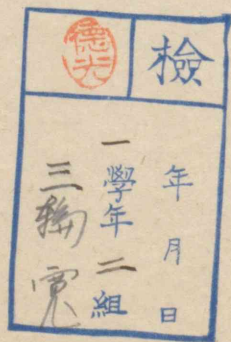 檢
德光
年 月 日
一學年二組
三輪寛